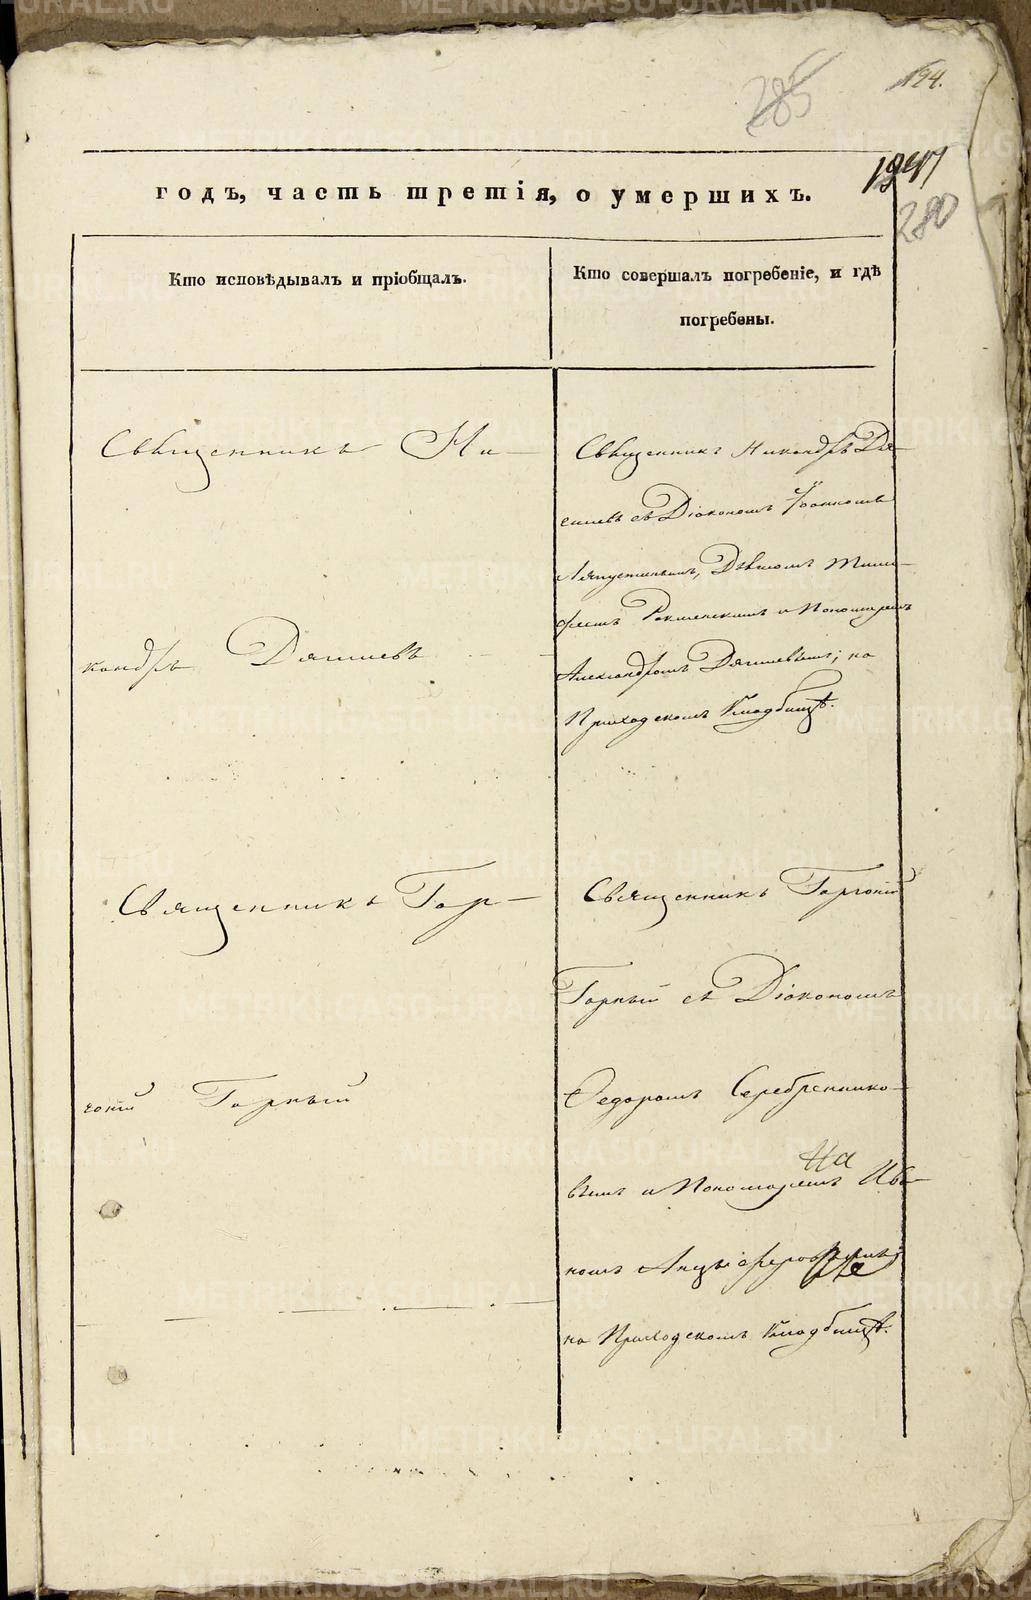 285
194.
годъ, часть третія, о умершихъ.
280
Кто исповѣдывалъ и пріобщалъ.
Кто совершалъ погребеніе, и гдѣ
погребены.
Священникъ Ни-
кандръ Дягилевъ
Священникъ Никандръ Дя-
гилевъ съ Діакономъ Іоанномъ
Ляпустинымъ,
и Пономаремъ
Александромъ Дягилевымъ; на
Приходскомъ Кладбищѣ.
Священникъ Гор-
гоній Горный
Священникъ Горгоній
Горный съ Діакономъ
Ѳедоромъ Серебреннико-
вымъ и Пономаремъ Ива-
номъ
на Приходскомъ Кладбищѣ.
METRIKI.GASO-URAL.RU